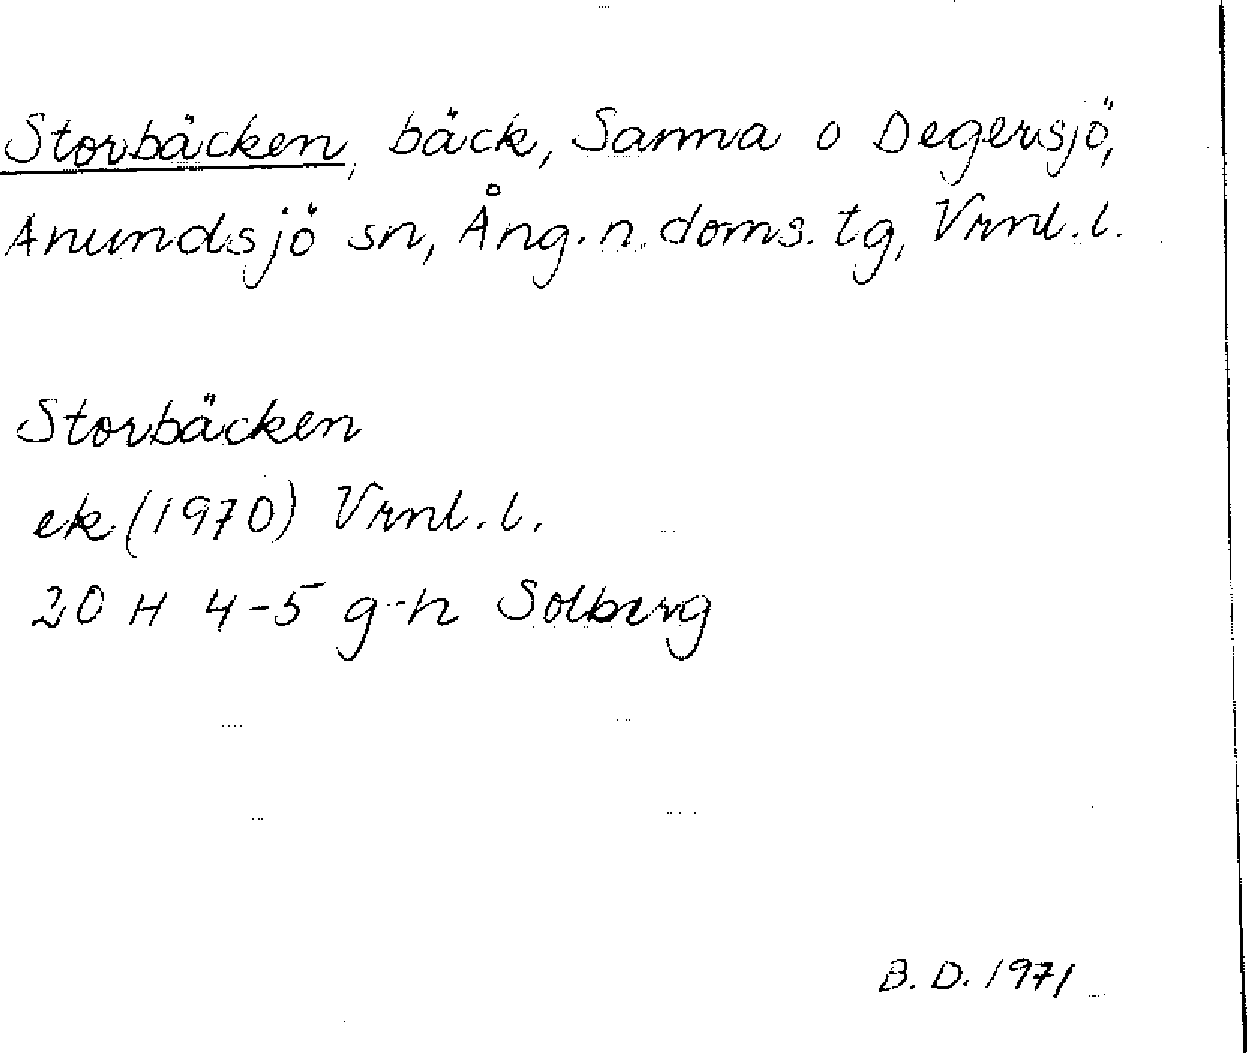 Storbäcken, bäck, Sanna o Degersjö,
Anundsjö sn, Ång. n. doms. tg, Vrnl. l.
Storbäcken
ek (1970) Vrnl. l.
20 H 4-5 g-h Solberg
B. D. 1971